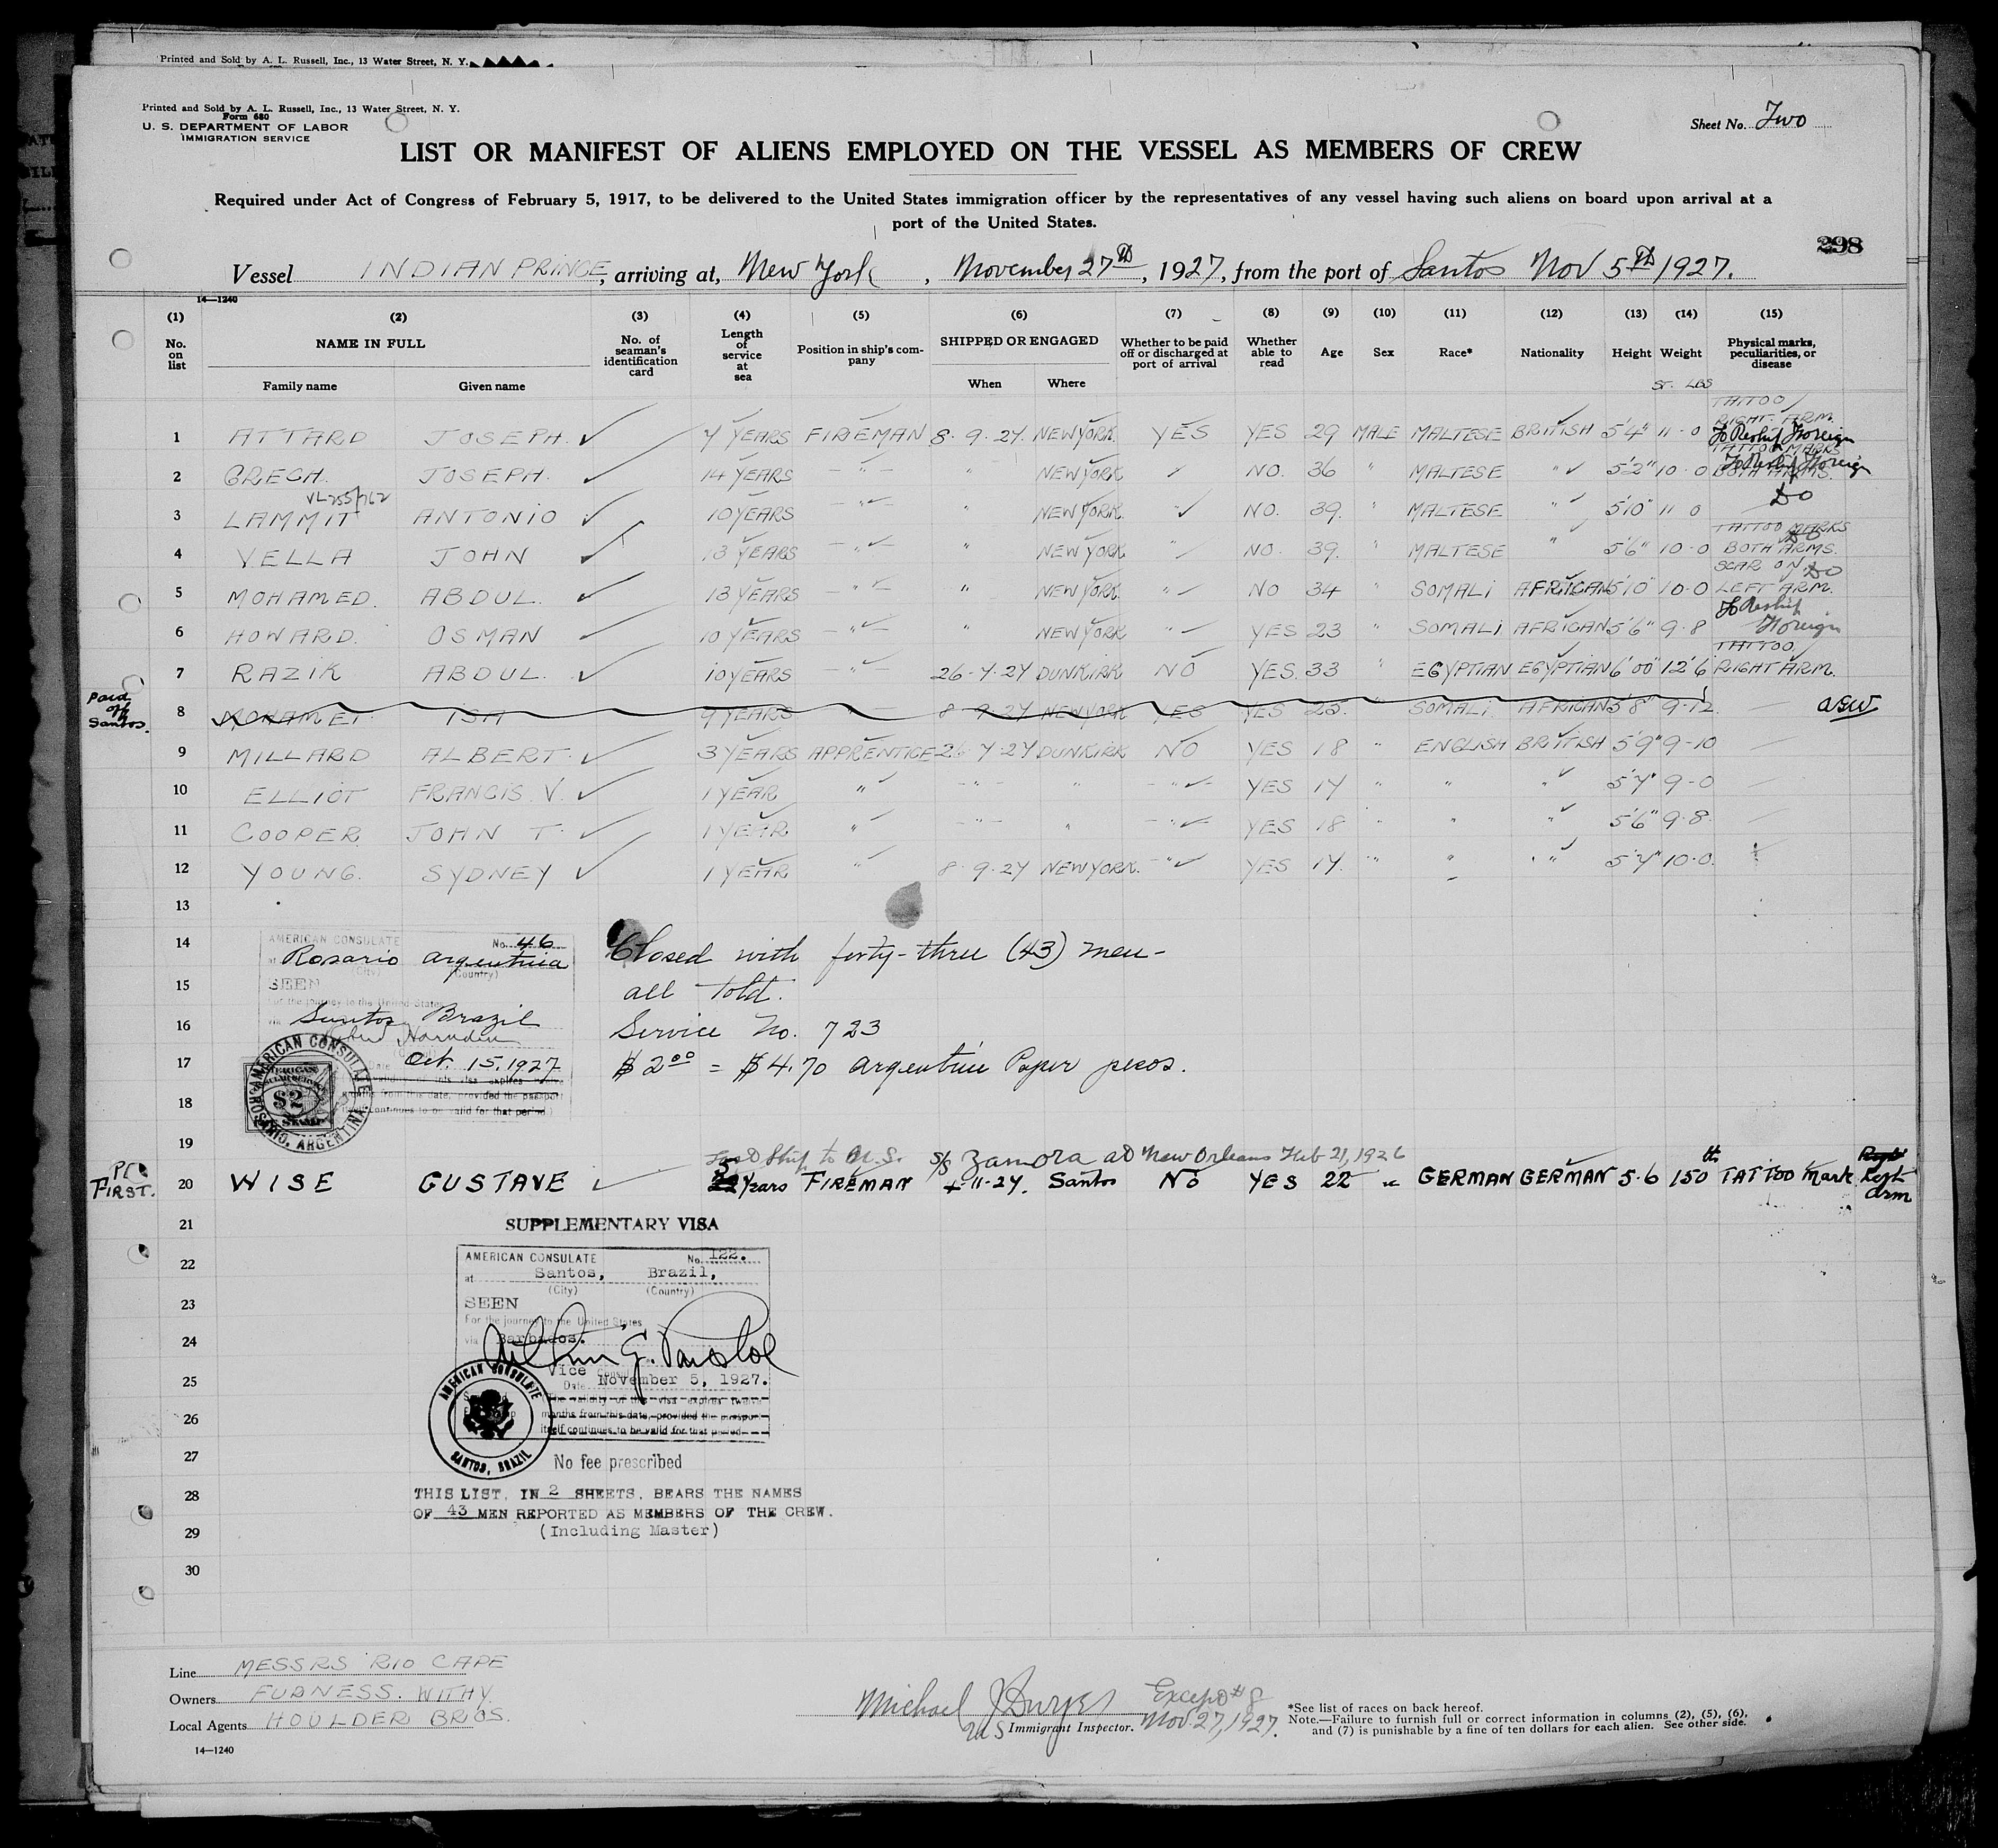 Printed and Sold by A. L. Russell, Inc., 13 Water Street, N. Y.
Printed and Sold by A. L. Russell, Inc., 13 Water Street, N. Y.
Form 680
U. S. DEPARTMENT OF LABOR
IMMIGRATION SERVICE
Sheet No. Two
LIST OR MANIFEST OF ALIENS EMPLOYED ON THE VESSEL AS MEMBERS OF CREW
Required under Act of Congress of February 5, 1917, to be delivered to the United States immigration officer by the representatives of any vessel having such aliens on board upon arrival at a
port of the United States.
298
Vessel INDIAN PRINCE, arriving at, New York, November 27th, 1927, from the port of Santos Nov 5th 1927.
14—1240
(1) (2) (3) (4) (5) (6) (7) (8) (9) (10) (11) (12) (13) (14) (15)
No. on list NAME IN FULL Family name Given name No. of seaman's identification card Length of service at sea Position in ship's company SHIPPED OR ENGAGED When Where Whether to be paid off or discharged at port of arrival Whether able to read Age Sex Race* Nationality Height Weight Physical marks, peculiarities, or disease
ST. LBS
TATTOO
RIGHT ARM.
1 ATTARD JOSEPH. ✓ 7 YEARS FIREMAN 8.9.27. NEWYORK. YES YES 29 MALE MALTESE BRITISH 5'4" 11-0 To Reship Foreign
TATTOO MARKS
2 GRECH. JOSEPH. ✓ 14 YEARS -"- " NEWYORK ✓ NO. 36 " MALTESE " ✓ 5'2" 10-0 BOTH ARMS. To Reship Foreign
VL255/762
3 LAMMIT ANTONIO ✓ 10 YEARS -"- " NEWYORK. " ✓ NO. 39. " MALTESE " ✓ 5'10" 11 0 DO
TATTOO MARKS
4 VELLA JOHN ✓ 13 YEARS -"- " NEWYORK " ✓ NO. 39. " MALTESE " 5'6" 10-0 BOTH ARMS. DO
SCAR ON DO
5 MOHAMED. ABDUL. ✓ 13 YEARS -"- " NEWYORK " ✓ NO 34 " SOMALI AFRICAN 5'10" 10-0 LEFT ARM.
6 HOWARD. OSMAN ✓ 10 YEARS -"- " NEWYORK " ✓ YES 23 " SOMALI AFRICAN 5'6" 9-8 To Reship Foreign
TATTOO
7 RAZIK ABDUL. ✓ 10 YEARS -"- 26-7-27 DUNKIRK NO YES. 33 " EGYPTIAN EGYPTIAN 6'00" 12'6 RIGHT ARM.
Paid off Santos. 8 MOHAMET. ISA 9 YEARS " 8-9-27 NEWYORK YES YES 25. " SOMALI. AFRICAN 5'8" 9-12
9 MILLARD ALBERT. ✓ 3 YEARS APPRENTICE 26 7-27 DUNKIRK NO YES 18 " ENGLISH BRITISH 5'9" 9-10
10 ELLIOT FRANCIS. V. ✓ 1 YEAR " -"- " -"- ✓ YES 17 " " " ✓ 5'7" 9-0
11 COOPER JOHN T. ✓ 1 YEAR " -"- " -"- ✓ YES 18 " " " ✓ 5'6" 9-8.
12 YOUNG. SYDNEY ✓ 1 YEAR " 8.9.27 NEWYORK. -"- ✓ YES 17. " " " ✓ 5'7" 10-0.
13
14
15
16
17
18
19
AMERICAN CONSULATE No. 46
at Rosario Argentina
(City) (Country)
SEEN
For the journey to the United States
via Santos Brazil
Date Oct. 15, 1927
AMERICAN CONSULATE
ROSARIO, ARGENTINA.
$2
Closed with forty-three (43) men -
all told.
Service No. 723
$2.00 = $4.70 Argentine Paper pesos.
Last Ship to U.S. S/S Zamora at New Orleans Feb 21, 1926
FIRST. 20 WISE GUSTAVE ✓ 5 years FIREMAN 11-27. Santos NO YES 22 " GERMAN GERMAN 5.6 150 lb TATTOO Mark Left arm
21
22
23
24
25
26
27
28
29
30
SUPPLEMENTARY VISA
AMERICAN CONSULATE No. 122.
at Santos, Brazil,
(City) (Country)
SEEN
For the journey to the United States
via Barbados.
Vice Consul
Date November 5, 1927.
The validity of this visa expires twelve
months from this date, provided the passport
itself continues to be valid for that period
AMERICAN CONSULATE
SANTOS, BRAZIL
No fee prescribed
THIS LIST, IN 2 SHEETS, BEARS THE NAMES
OF 43 MEN REPORTED AS MEMBERS OF THE CREW.
(Including Master)
Line MESSRS RIO CAPE
Owners FURNESS. WITHY.
Local Agents HOULDER BROS.
14—1240
Michael J Dwyer
US Immigrant Inspector.
Except #8
Nov. 27, 1927.
*See list of races on back hereof.
Note.—Failure to furnish full or correct information in columns (2), (5), (6),
and (7) is punishable by a fine of ten dollars for each alien. See other side.